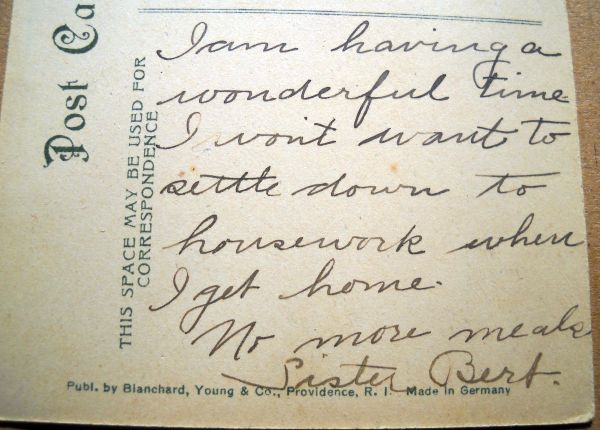 Post Ca
THIS SPACE MAY BE USED FOR
CORRESPONDENCE
I am having a
wonderful time
I won't want to
settle down to
housework when
I get home.
No more meals
Sister Bert.
Publ. by Blanchard, Young & Co., Providence, R. I. Made in Germany